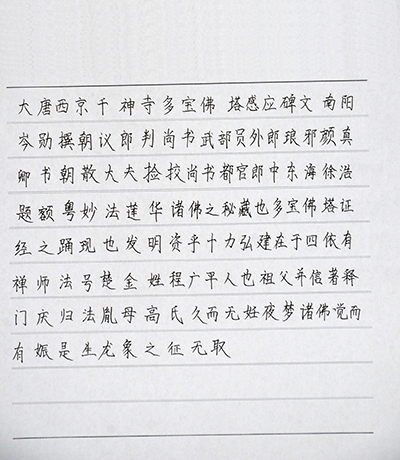 大唐西京千神寺多宝佛 塔感应碑文 南阳
岑勋撰朝议郎判尚书武部员外郎琅邪颜真
卿书朝散大夫捡挍尚书都官郎中东海徐浩
题额粤妙法莲华诸佛之秘藏也多宝佛塔证
经之踊现也发明资乎十力弘建在于四依有
禅师法号楚金姓程广平人也祖父并信著释
门庆归法胤母高氏久而无妊夜梦诸佛觉而
有娠是生龙象之征无取